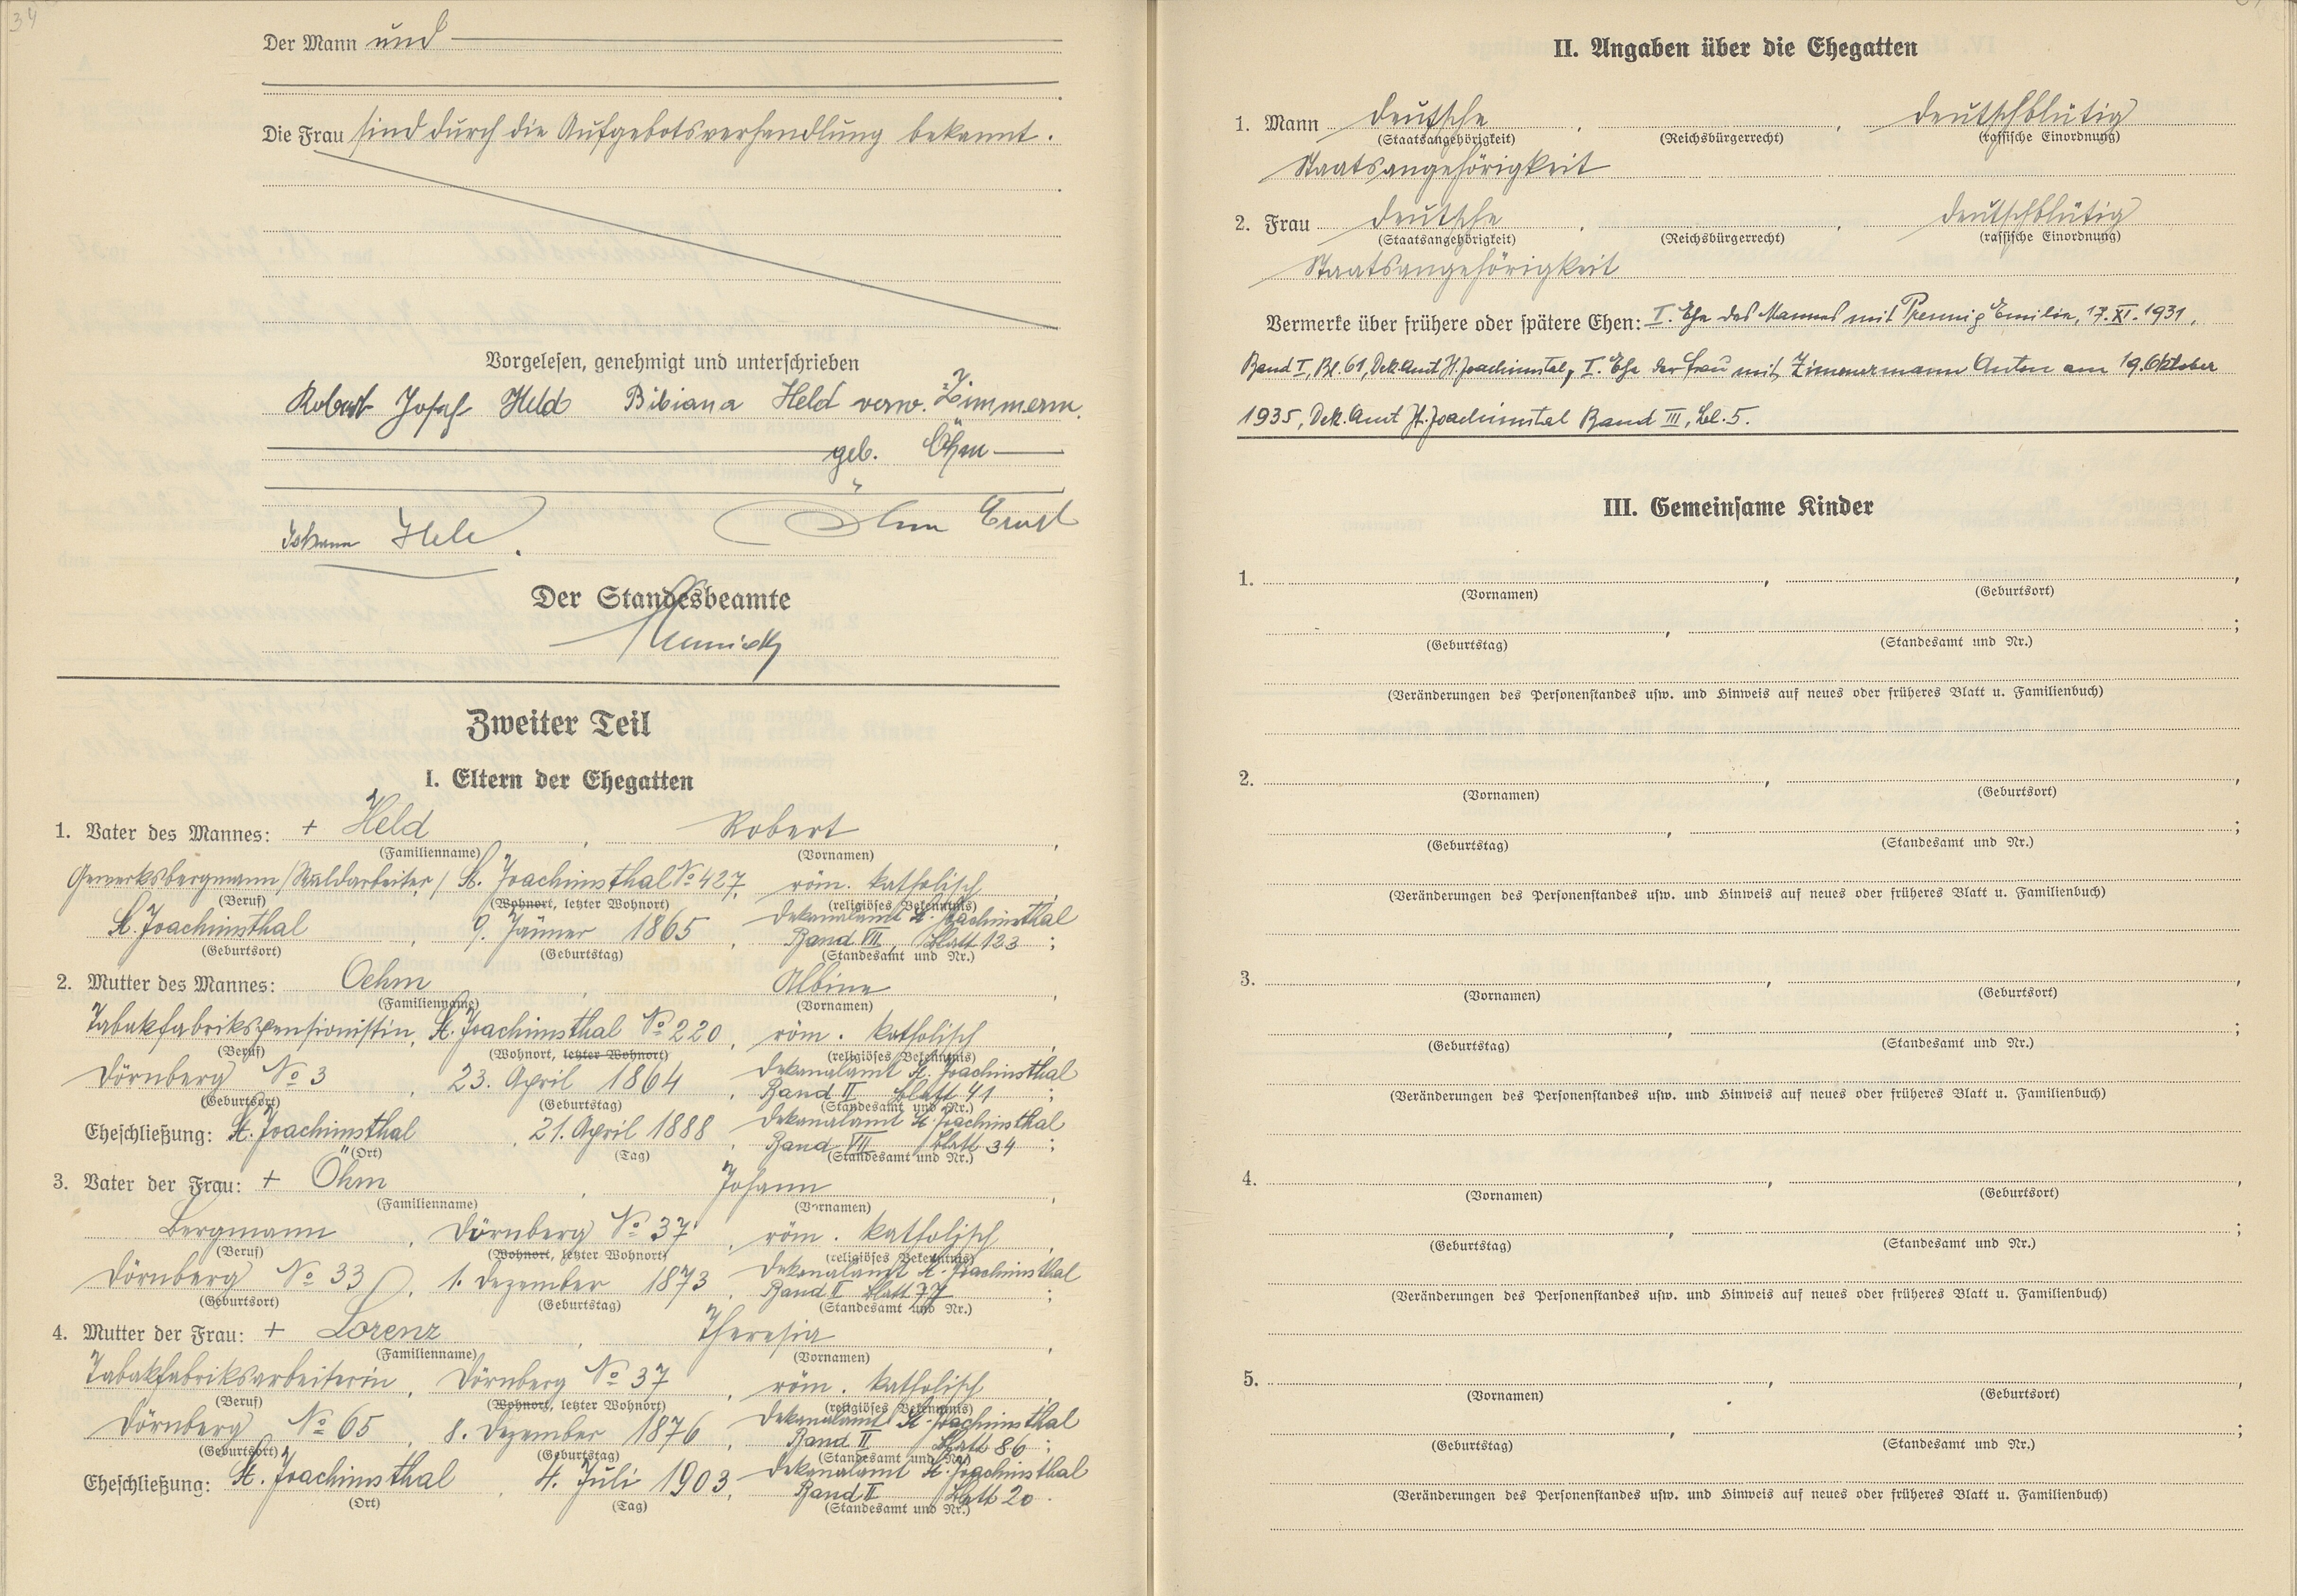 34
Der Mann und
Die Frau sind durch die Aufgebotsverhandlung bekannt.
Vorgelesen, genehmigt und unterschrieben
Robert Josef Held Bibiana Held verw. Zimmerm.
geb. Öhm
Johann Held Öhm Ernst
Der Standesbeamte
Zweiter Teil
I. Eltern der Ehegatten
1. Vater des Mannes: + Held, Robert,
(Familienname) (Vornamen)
Gewerksbergmann /Waldarbeiter/ St. Joachimsthal No 427, röm. katholisch,
(Beruf) (Wohnort, letzter Wohnort) (religiöses Bekenntnis)
St. Joachimsthal, 9. Jänner 1865, Dekanalamt St. Joachimsthal
Band VII, Blatt 123;
(Geburtsort) (Geburtstag) (Standesamt und Nr.)
2. Mutter des Mannes: Oehm, Albine,
(Familienname) (Vornamen)
Tabakfabrikspensionistin, St. Joachimsthal No 220, röm. katholisch,
(Beruf) (Wohnort, letzter Wohnort) (religiöses Bekenntnis)
Dörnberg No 3, 23. April 1864, Dekanalamt St. Joachimsthal
Band II Blatt 41;
(Geburtsort) (Geburtstag) (Standesamt und Nr.)
Eheschließung: St. Joachimsthal, 21. April 1888, Dekanalamt St. Joachimsthal
Band VIII Blatt 34;
(Ort) (Tag) (Standesamt und Nr.)
3. Vater der Frau: + Öhm, Johann,
(Familienname) (Vornamen)
Bergmann, Dörnberg No 37, röm. katholisch,
(Beruf) (Wohnort, letzter Wohnort) (religiöses Bekenntnis)
Dörnberg No 33, 1. Dezember 1873, Dekanalamt St. Joachimsthal
Band II Blatt 77;
(Geburtsort) (Geburtstag) (Standesamt und Nr.)
4. Mutter der Frau: + Lorenz, Theresia,
(Familienname) (Vornamen)
Tabakfabriksarbeiterin, Dörnberg No 37, röm. katholisch,
(Beruf) (Wohnort, letzter Wohnort) (religiöses Bekenntnis)
Dörnberg No 65, 8. Dezember 1876, Dekanalamt St. Joachimsthal
Band II Blatt 86;
(Geburtsort) (Geburtstag) (Standesamt und Nr.)
Eheschließung: St. Joachimsthal, 4. Juli 1903, Dekanalamt St. Joachimsthal
Band II Blatt 20.
(Ort) (Tag) (Standesamt und Nr.)
II. Angaben über die Ehegatten
1. Mann deutsche, , deutschblütig
(Staatsangehörigkeit) (Reichsbürgerrecht) (rassische Einordnung)
Staatsangehörigkeit
2. Frau deutsche, , deutschblütig
(Staatsangehörigkeit) (Reichsbürgerrecht) (rassische Einordnung)
Staatsangehörigkeit
Vermerke über frühere oder spätere Ehen: I. Ehe des Mannes mit Emilie, 17. XI. 1931,
Band I, Bl. 61, Dek. Amt St. Joachimstal, I. Ehe der Frau mit Zimmermann Anton am 19. Oktober
1935, Dek. Amt St. Joachimstal Band III, Bl. 5.
III. Gemeinsame Kinder
1. , ,
(Vornamen) (Geburtsort)
, ;
(Geburtstag) (Standesamt und Nr.)
(Veränderungen des Personenstandes usw. und Hinweis auf neues oder früheres Blatt u. Familienbuch)
2. , ,
(Vornamen) (Geburtsort)
, ;
(Geburtstag) (Standesamt und Nr.)
(Veränderungen des Personenstandes usw. und Hinweis auf neues oder früheres Blatt u. Familienbuch)
3. , ,
(Vornamen) (Geburtsort)
, ;
(Geburtstag) (Standesamt und Nr.)
(Veränderungen des Personenstandes usw. und Hinweis auf neues oder früheres Blatt u. Familienbuch)
4. , ,
(Vornamen) (Geburtsort)
, ;
(Geburtstag) (Standesamt und Nr.)
(Veränderungen des Personenstandes usw. und Hinweis auf neues oder früheres Blatt u. Familienbuch)
5. , ,
(Vornamen) (Geburtsort)
, ;
(Geburtstag) (Standesamt und Nr.)
(Veränderungen des Personenstandes usw. und Hinweis auf neues oder früheres Blatt u. Familienbuch)